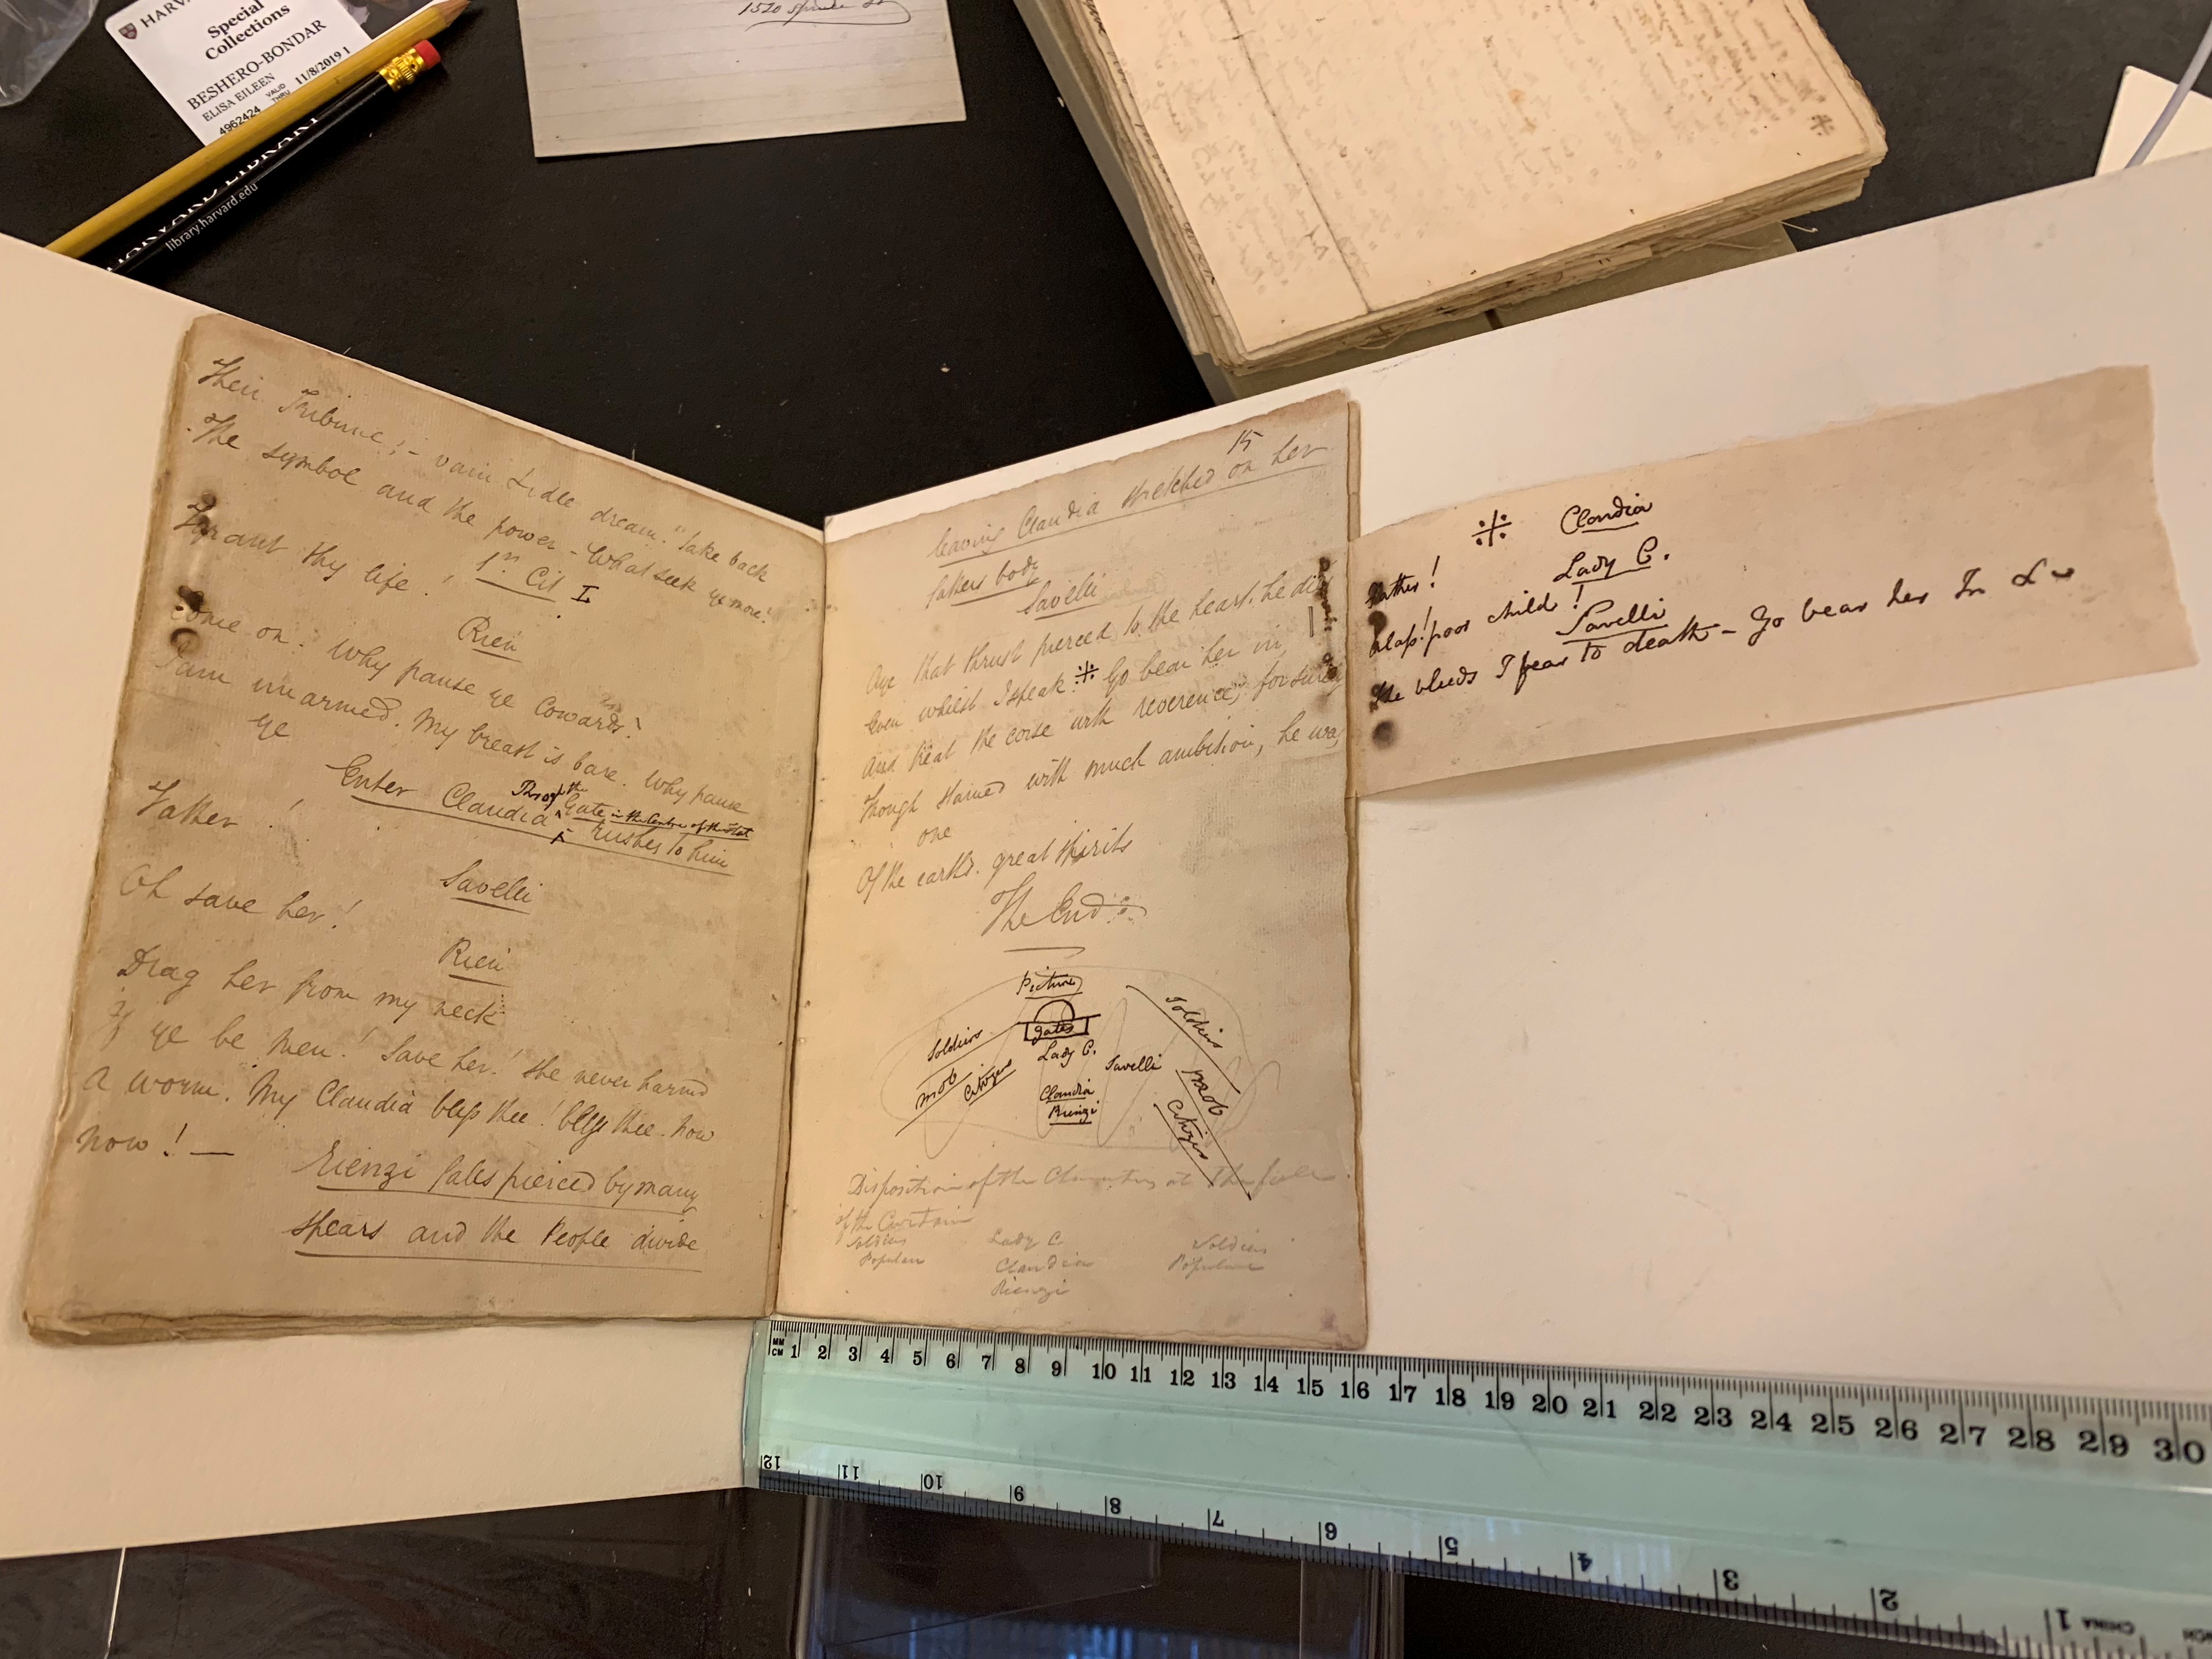 HARV
Special
Collections
BESHERO-BONDAR
ELISA EILEEN
4962424 VALID THRU 11/8/2019 1
HARVARD LIBRARY
library.harvard.edu
1520 Spruce St
Their Tribune; - vain & idle dream. "Take back
The symbol and the power - What seek ye more?
Tyrant thy life!
1st Cit I
Rien
Come on. Why pause ye Cowards?
I am unarmed. My breast is bare. Why pause
ye
Enter Claudia Thro' the Gate in the Centre of the Flat rushes to him
Father!
Savelli
Oh save her!
Rien
Drag her from my neck
if ye be men! Save her! She never harmd
A worm. My Claudia bless thee! bless thee. now
now! —
Rienzi falls pierced by many
spears and the People divide
15
leaving Claudia stretched on her
fathers body
Savelli
Aye that thrust pierced to the heart. he dies
Even whilst I speak. ※ Go bear her in,
And treat the corse with reverence; for surely
Though stained with much ambition, he was
one
Of the earth's great spirits
The End
Picture
gates
Soldiers
Mob
Citizens
Lady C.
Savelli
Claudia
Rienzi
Soldiers
Mob
Citizens
Disposition of the Characters at the fall
of the Curtain
Soldiers
Populace
Lady C
Claudia
Rienzi
Soldiers
Populace
※ Claudia
Father!
Lady C.
Alas! poor child!
Savelli
She bleeds I fear to death - Go bear her In &c
MM
CM 1 2 3 4 5 6 7 8 9 10 11 12 13 14 15 16 17 18 19 20 21 22 23 24 25 26 27 28 29 30
12 11 10 9 8 7 6 5 4 3 2 1
CHINA